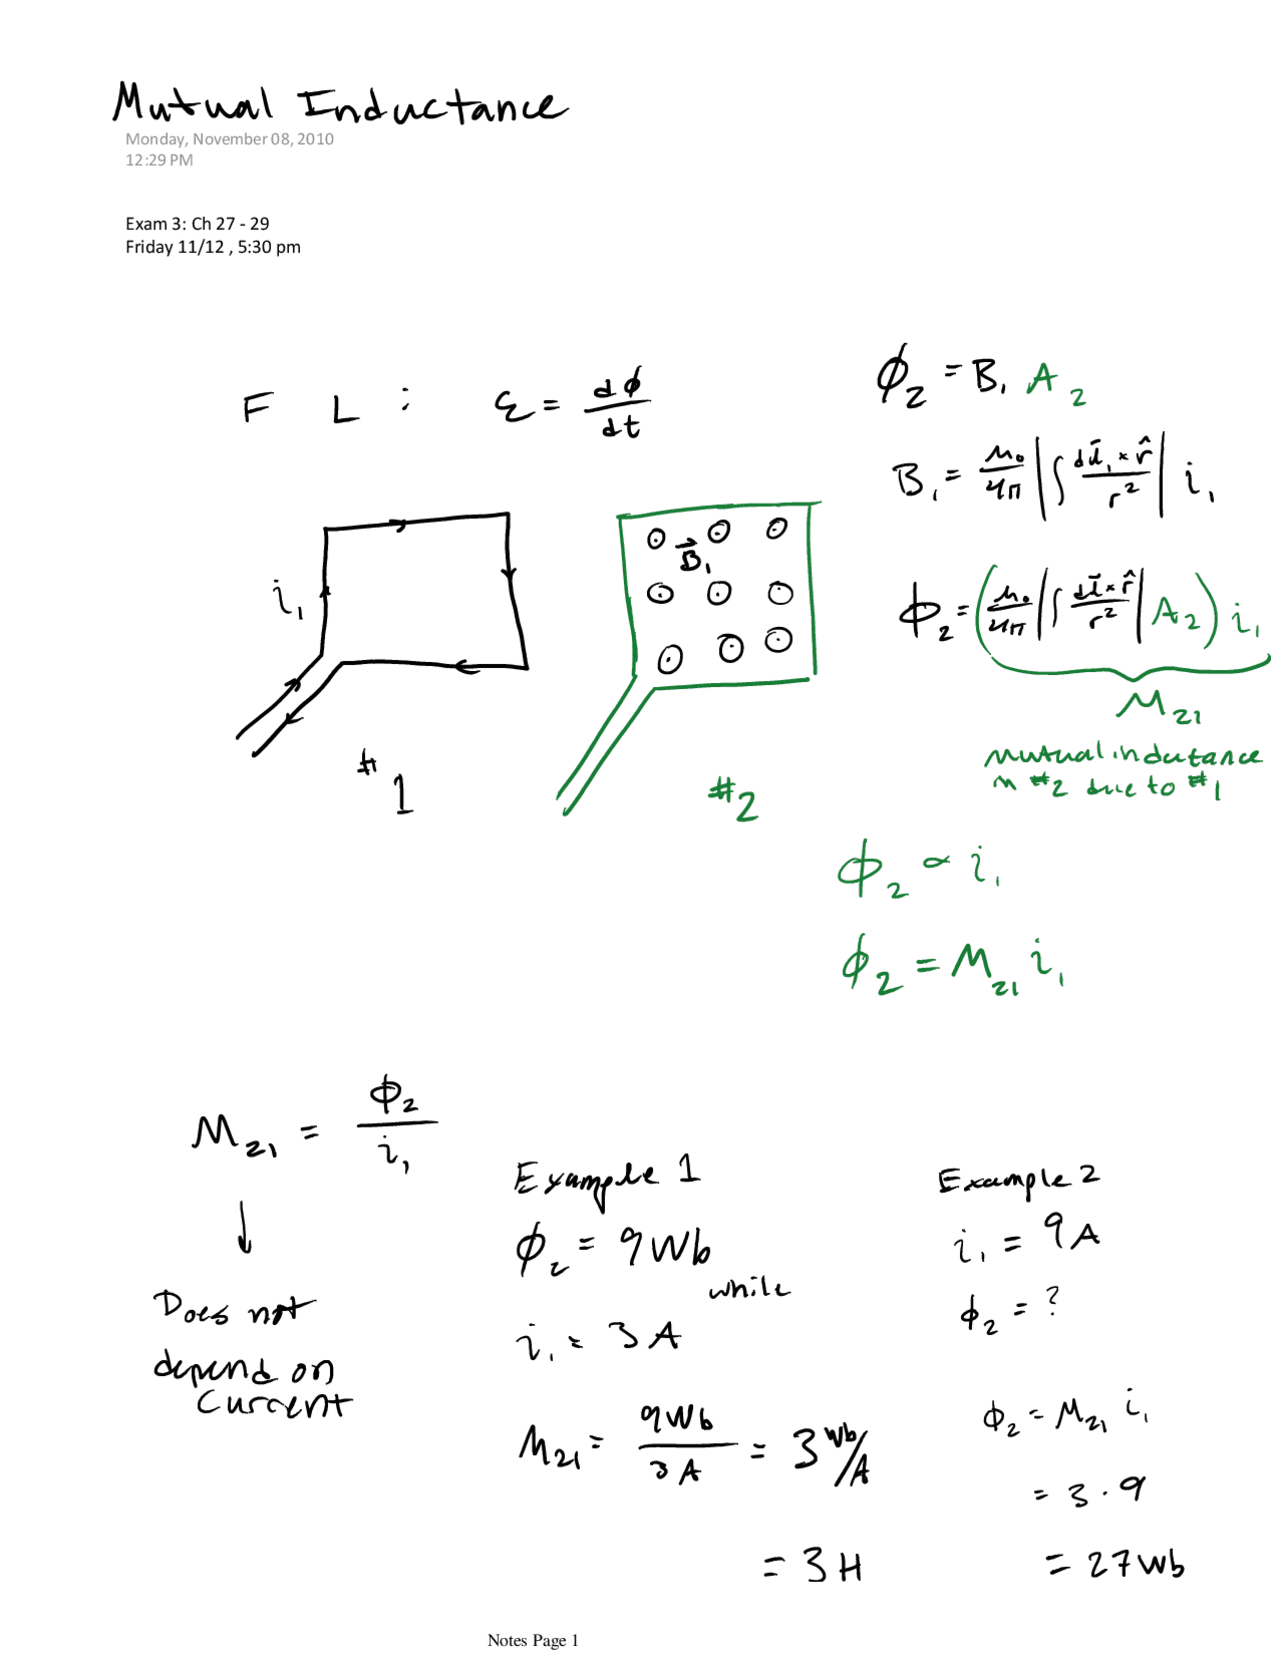 Mutual Inductance
Monday, November 08, 2010
12:29 PM
Exam 3: Ch 27 - 29
Friday 11/12 , 5:30 pm
F L : ℰ = dϕ/dt
i₁
#1
B⃗₁
#2
ϕ₂ = B₁ A₂
B₁ = μ₀/4π |∫ dl⃗₁ × r̂ / r²| i₁
ϕ₂ = (μ₀/4π |∫ dl⃗ × r̂ / r²| A₂) i₁
M₂₁
mutual inductance
in #2 due to #1
ϕ₂ ∝ i₁
ϕ₂ = M₂₁ i₁
M₂₁ = ϕ₂/i₁
↓
Does not
depend on
current
Example 1
ϕ₂ = 9Wb
while
i₁ = 3A
M₂₁ = 9Wb/3A = 3 Wb/A
= 3H
Example 2
i₁ = 9A
ϕ₂ = ?
ϕ₂ = M₂₁ i₁
= 3 · 9
= 27Wb
Notes Page 1